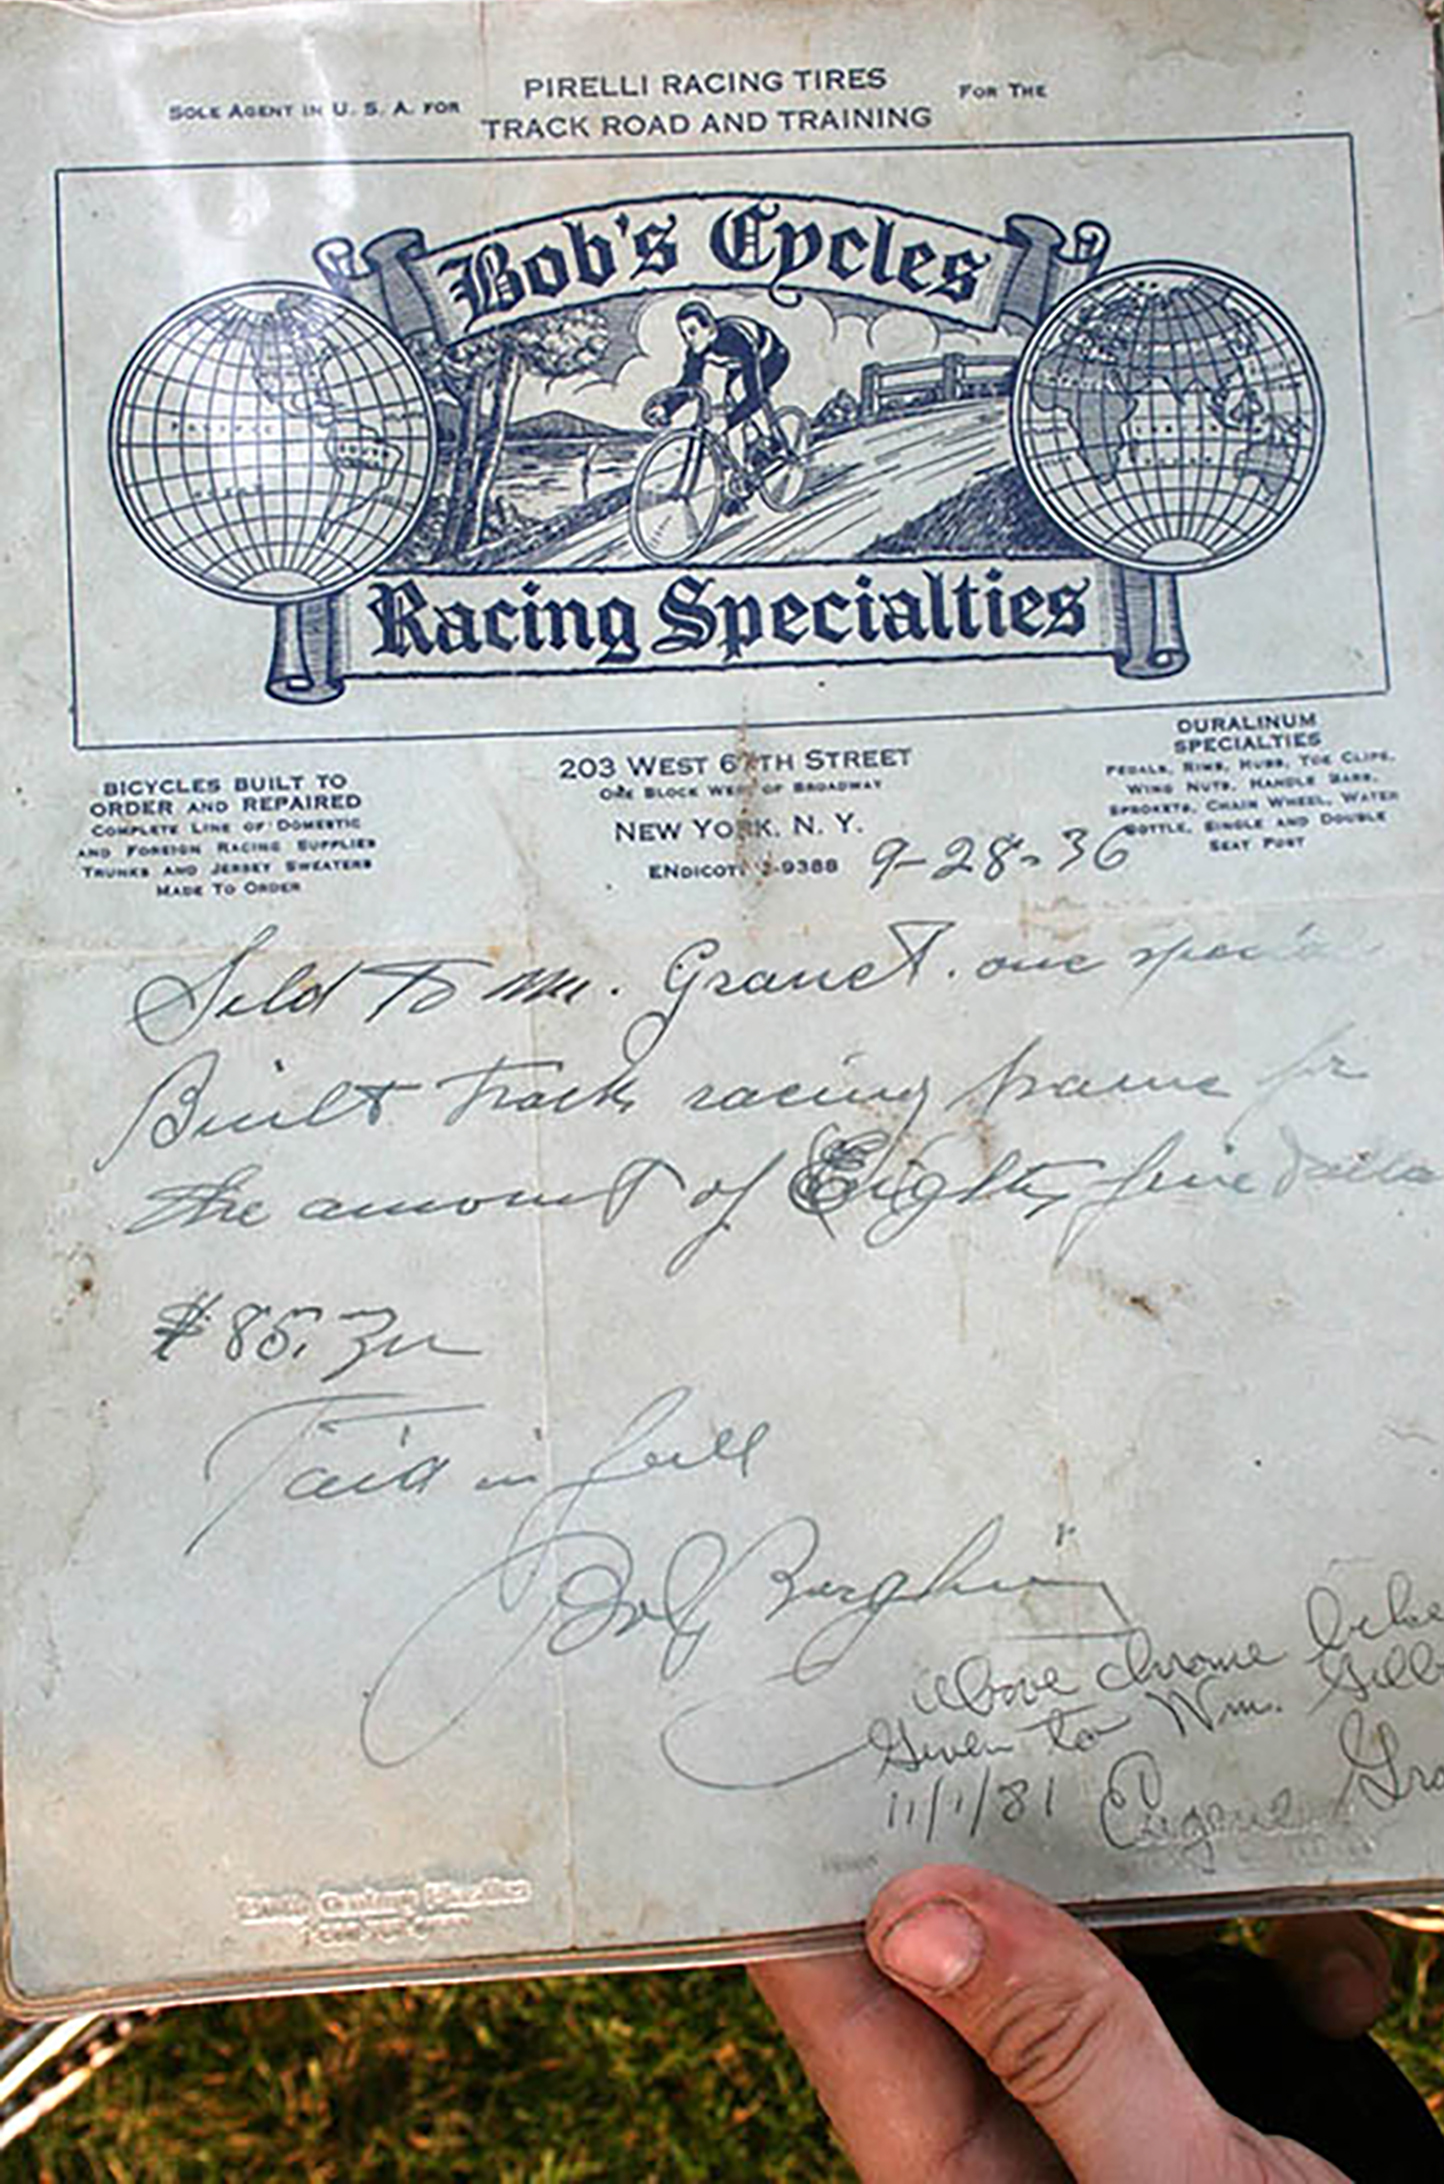 PIRELLI RACING TIRES
SOLE AGENT IN U. S. A. FOR FOR THE
TRACK ROAD AND TRAINING
Bob's Cycles
Racing Specialties
BICYCLES BUILT TO
ORDER AND REPAIRED
COMPLETE LINE OF DOMESTIC
AND FOREIGN RACING SUPPLIES
TRUNKS AND JERSEY SWEATERS
MADE TO ORDER
203 WEST 67TH STREET
ONE BLOCK WEST OF BROADWAY
NEW YORK, N. Y.
ENDICOTT 2-9388
DURALINUM
SPECIALTIES
PEDALS, RIMS, HUBS, TOE CLIPS,
WING NUTS, HANDLE BARS,
SPROKETS, CHAIN WHEEL, WATER
BOTTLE, SINGLE AND DOUBLE
SEAT POST
9-28-36
Sold To Mr. Granet. one special
Built track racing frame for
the amount of Eighty five
$85.
Paid in full
Bob
above chrome
Given to Wm.
11/1/81 Eugene